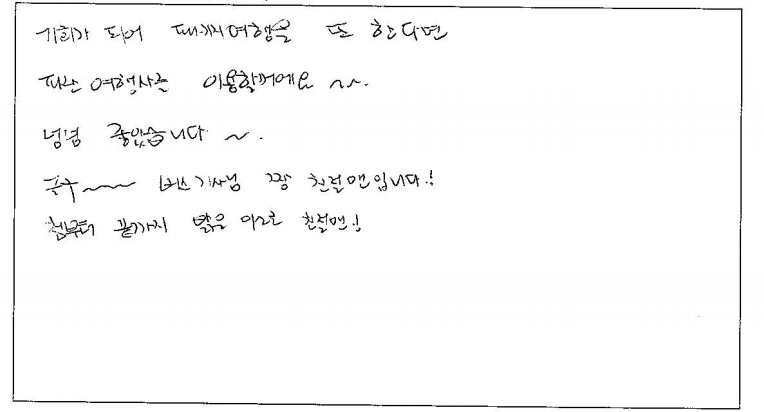 기회가 되어 패키지여행을 또 한다면
파란 여행사를 이용할꺼에요 ~~.
넘넘 좋았습니다 ~.
기사님 짱 친절맨입니다!
첨부터 끝까지 밝은 미소로 친절맨!